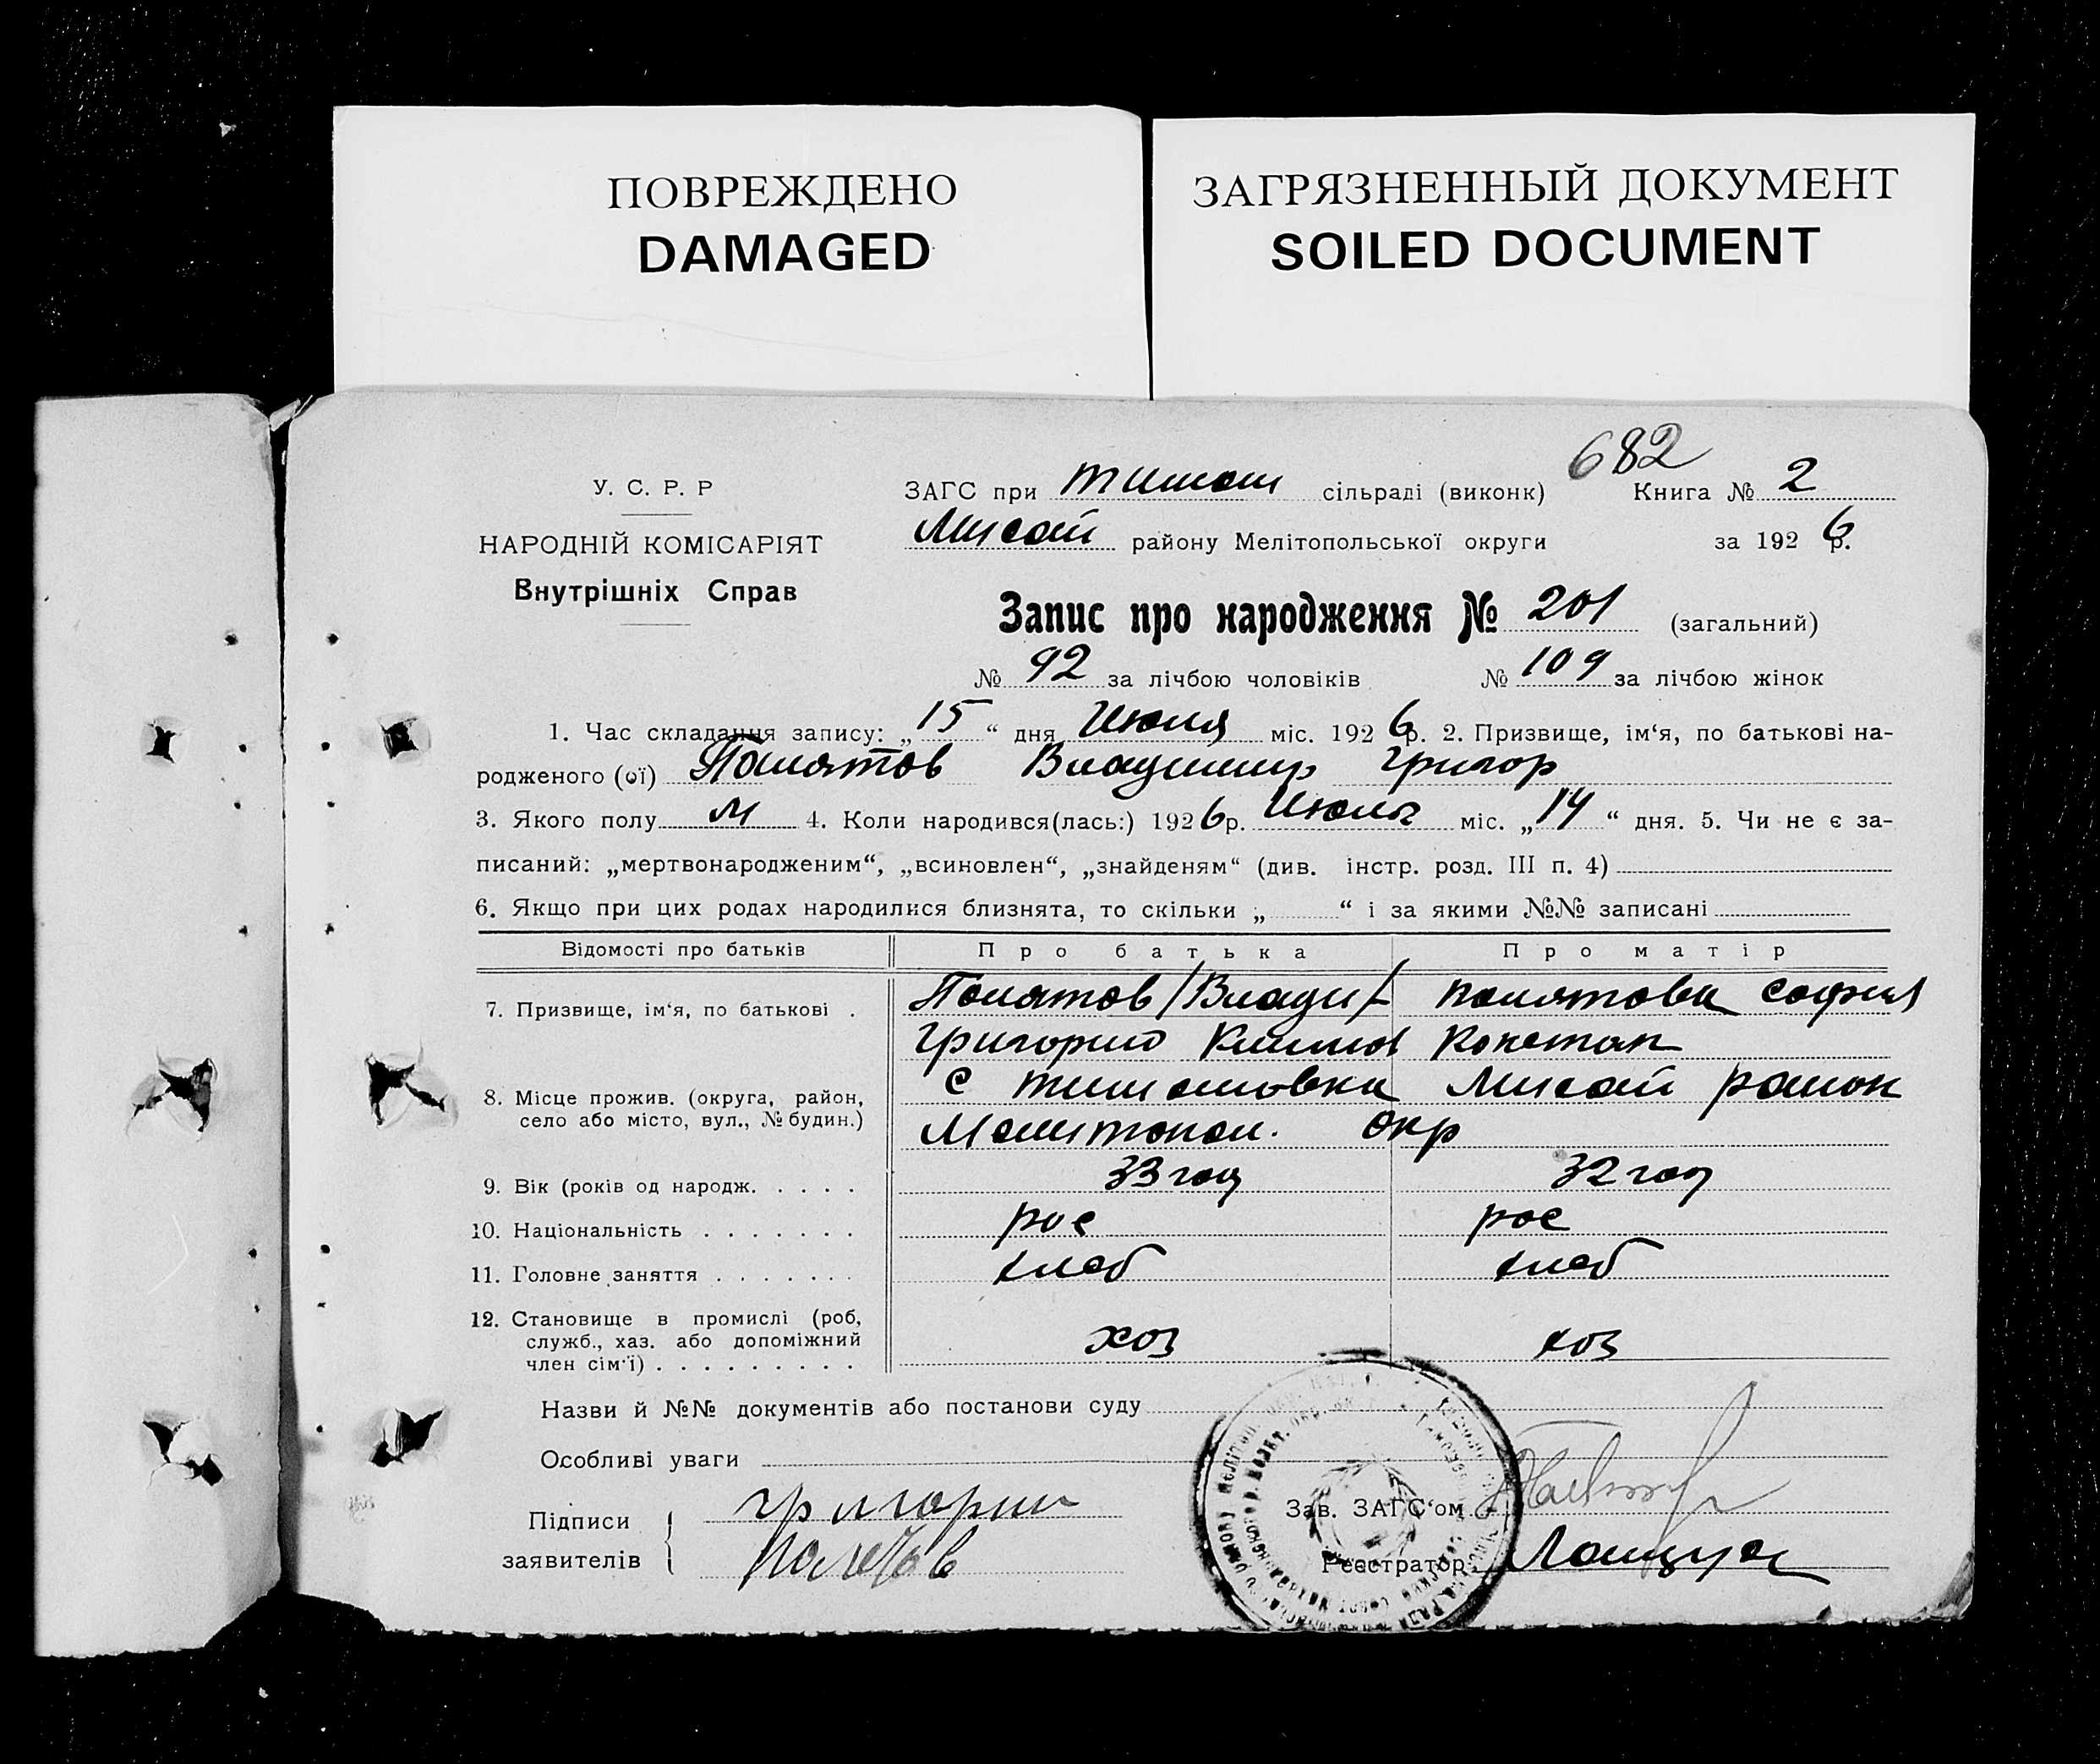 ПОВРЕЖДЕНО
DAMAGED
ЗАГРЯЗНЕННЫЙ ДОКУМЕНТ
SOILED DOCUMENT
682
У. С. Р. Р
НАРОДНІЙ КОМІСАРІЯТ
Внутрішніх Справ
ЗАГС при Тимош сільраді (виконк) Книга № 2
Мисай району Мелітопольської округи за 1926 р.
Запис про народження № 201 (загальний)
№ 92 за лічбою чоловіків № 109 за лічбою жінок
1. Час складання запису: „15“ дня Июля міс. 1926 р. 2. Призвище, ім‘я, по батькові на-
родженого (ої) Полятов Владимир Григор
3. Якого полу м 4. Коли народився(лась:) 1926 р. Июля міс. „14“ дня. 5. Чи не є за-
писаний: „мертвонародженим“, „всиновлен“, „знайденям“ (див. інстр. розд. III п. 4)
6. Якщо при цих родах народилися близнята, то скільки „ “ і за якими №№ записані
Відомості про батьків Про батька Про матір
7. Призвище, ім‘я, по батькові . Полятов /Влади/ Полятова София
Григорий Климов Констан
8. Місце прожив. (округа, район, с Тимошовка Мисай район
село або місто, вул., № будин.) Мелитопол. окр
9. Вік (років од народж. . . . . 33 год 32 год
10. Національність . . . . . . . рос рос
11. Головне заняття . . . . . . . хлеб хлеб
12. Становище в промислі (роб,
служб., хаз. або допоміжний хоз хоз
член сім‘ї) . . . . . . . . .
Назви й №№ документів або постанови суду
Особливі уваги
Підписи Григорий
заявителів Полятов
Зав. ЗАГС‘ом
Реєстратор